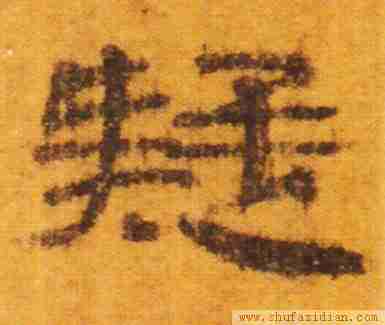 疑
www.shufazidian.com